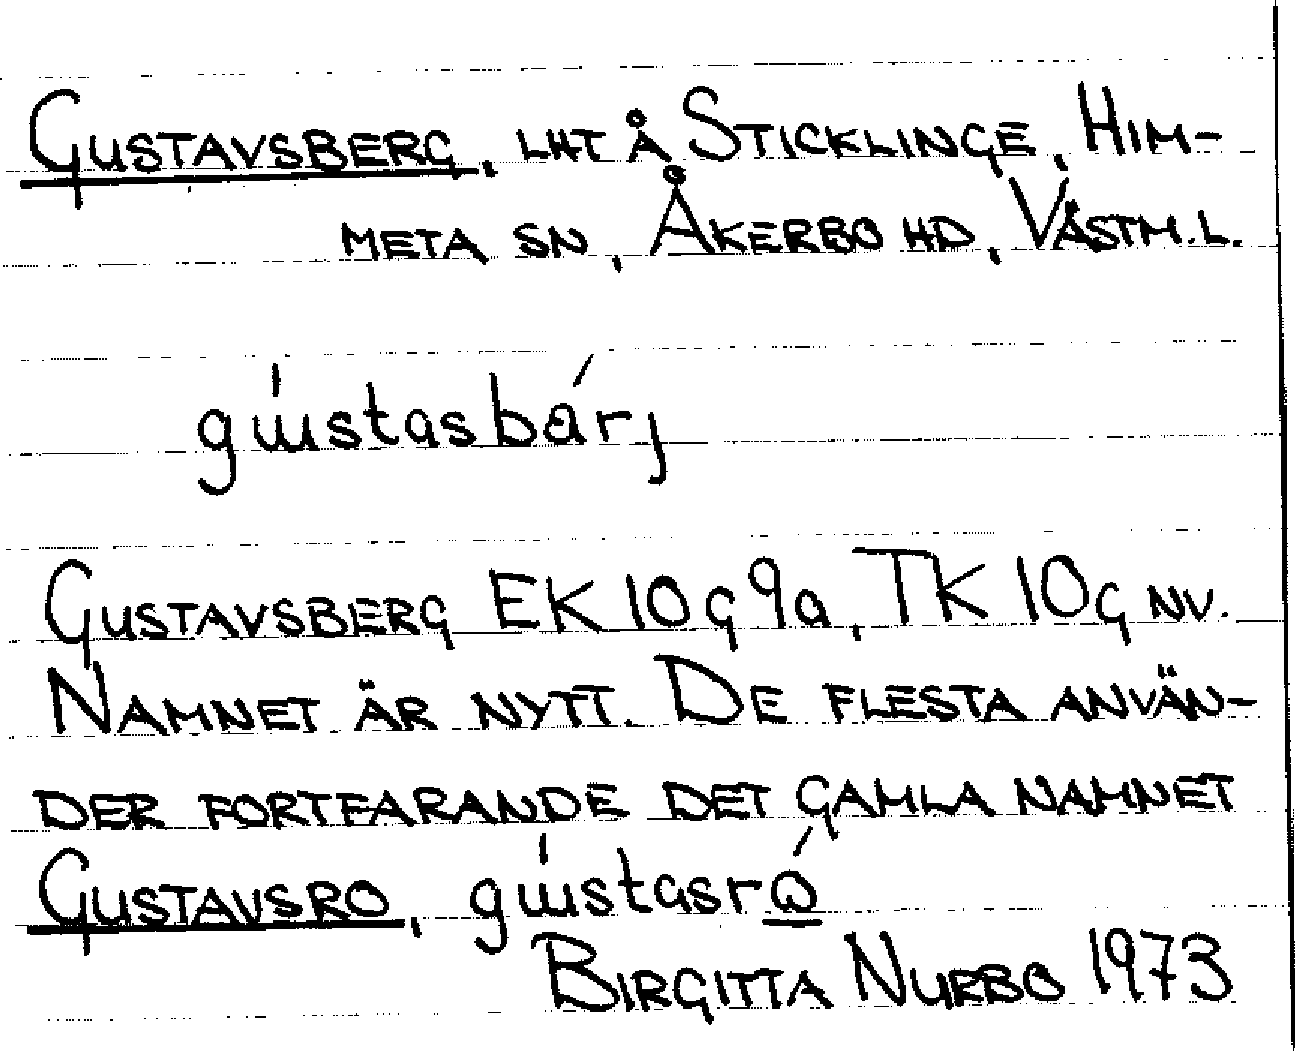 Gustavsberg, lht å Sticklinge, Him-
meta sn, Åkerbo hd, Västm.l.
gɯ́stasbárj
Gustavsberg EK 10g9a, TK 10g nv.
Namnet är nytt. De flesta använ-
der fortfarande det gamla namnet
Gustavsro, gɯ́stasrώ
Birgitta Nurbo 1973